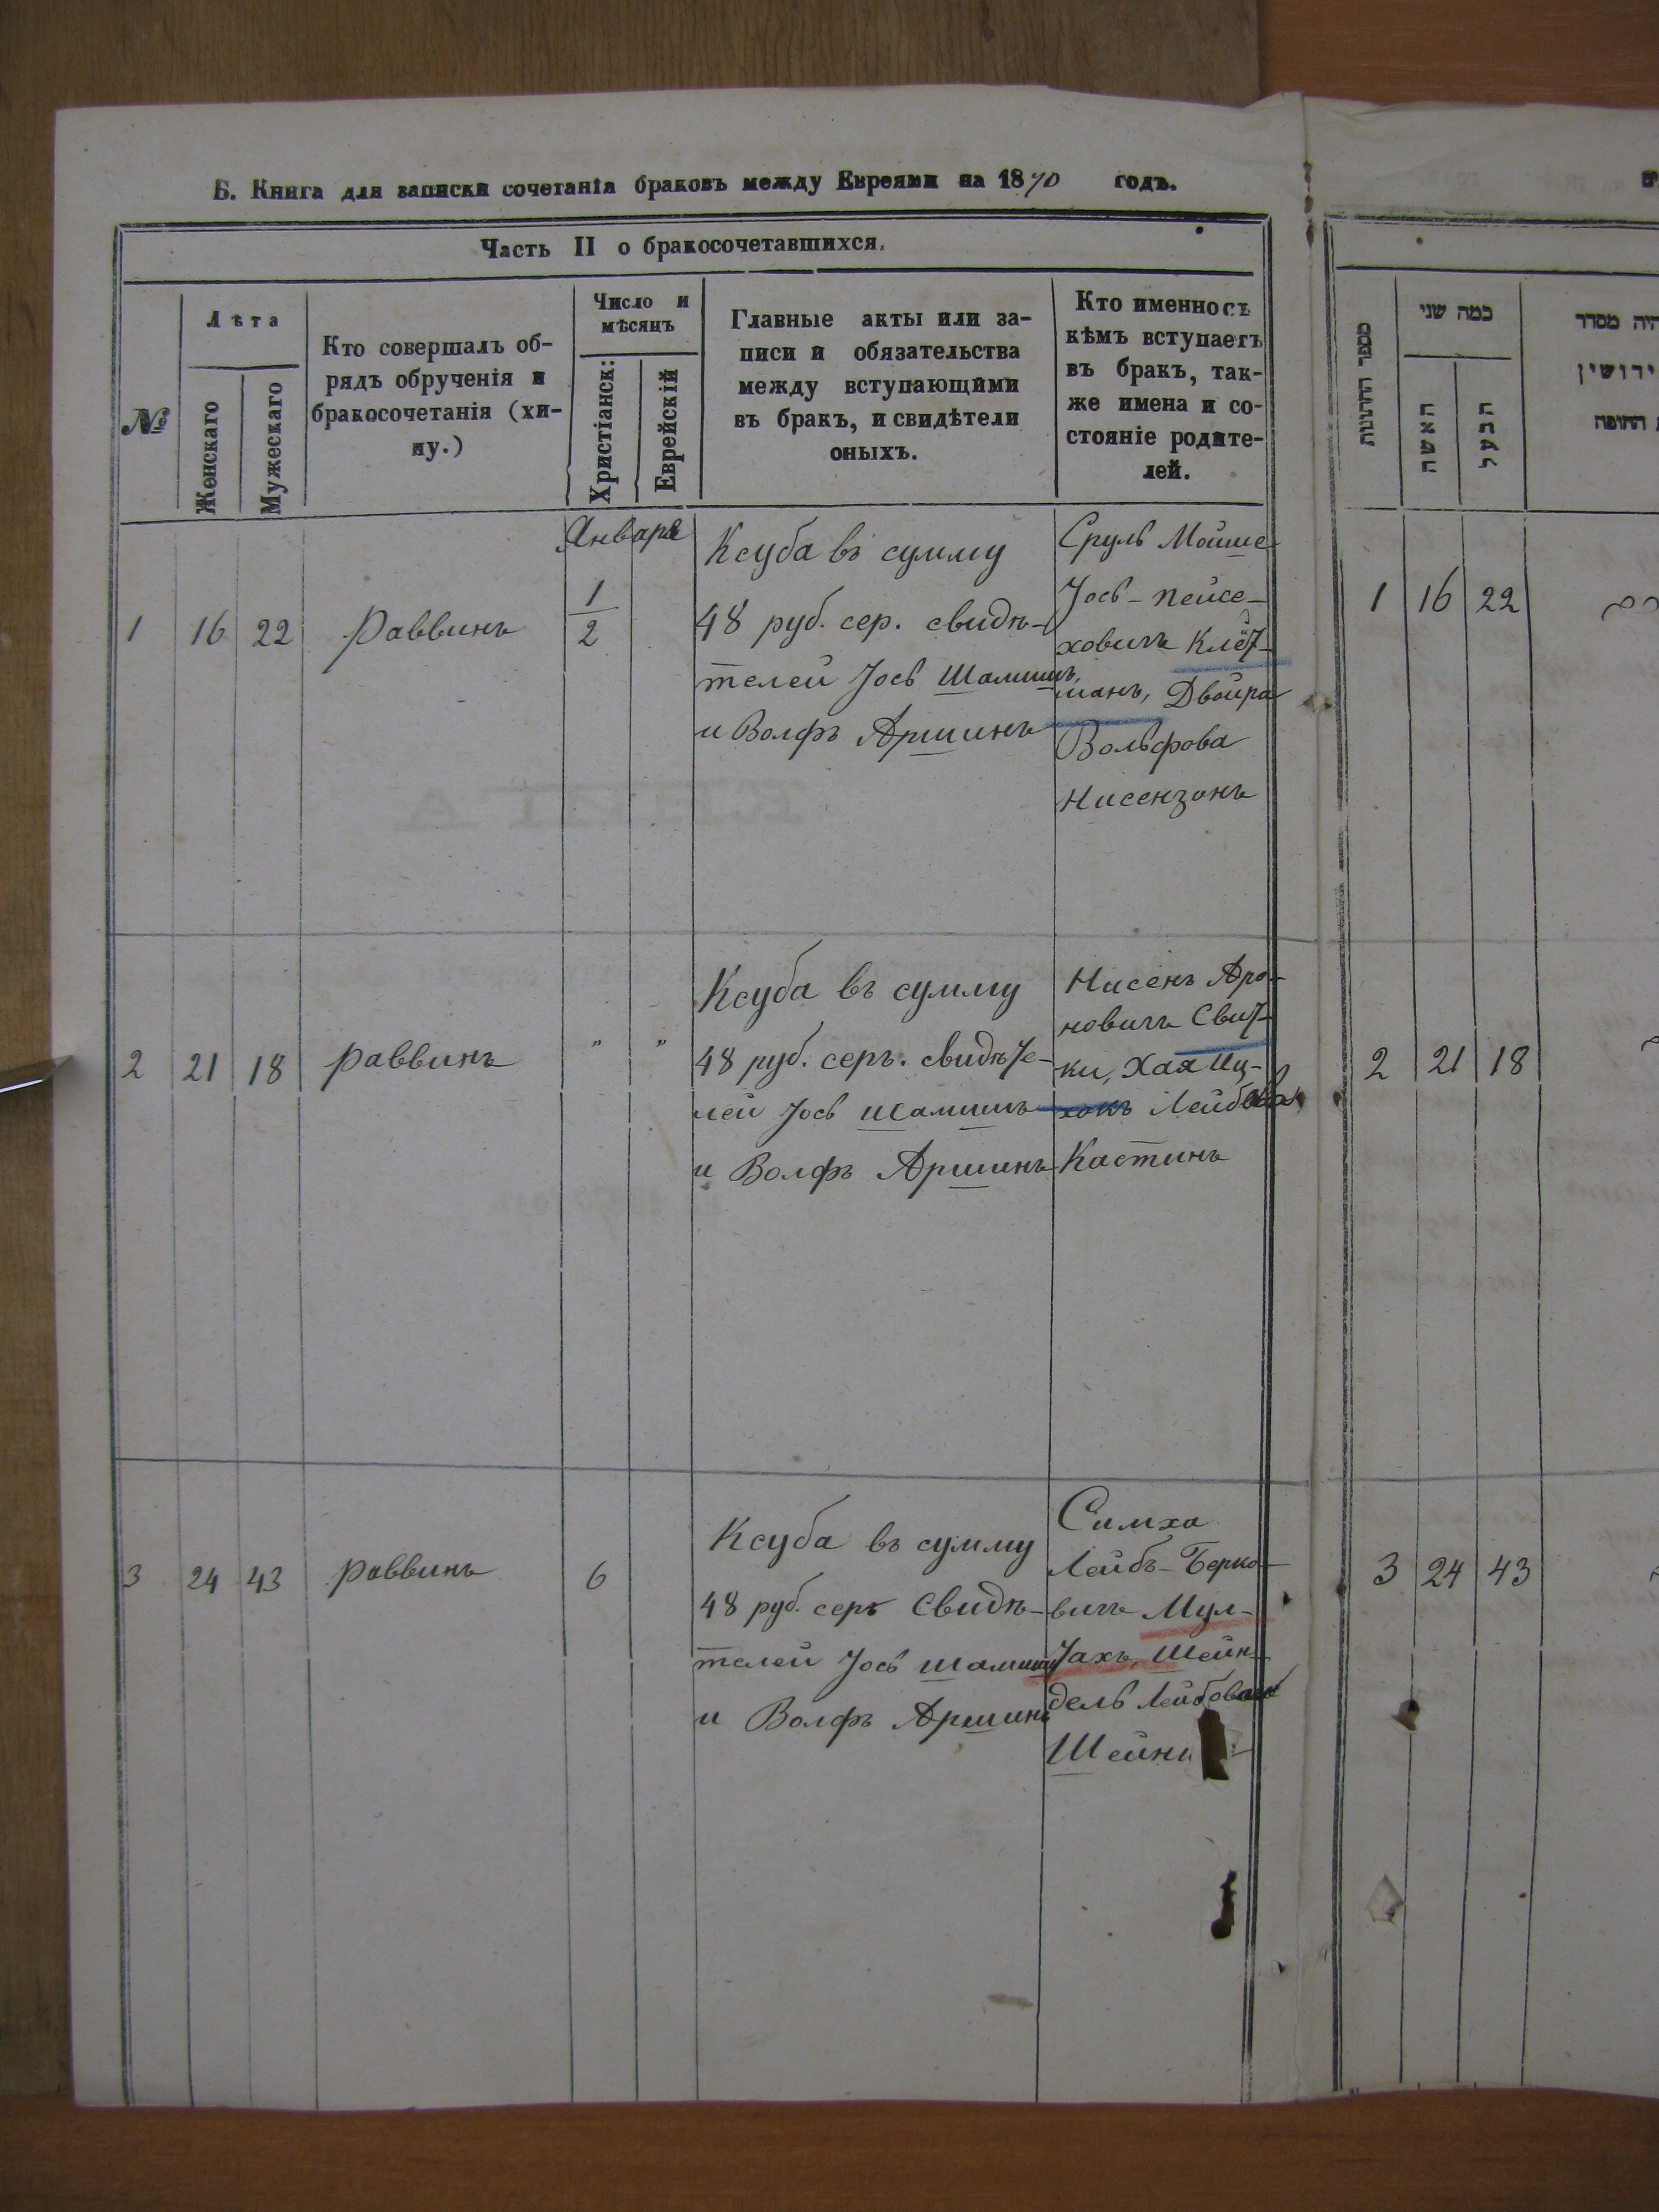 Б. Книга для записки сочетанія браковъ между Евреями на 1870 годъ.
Часть II о бракосочетавшихся.
№
Лѣта
Женскаго
Мужескаго
Кто совершалъ об-
рядъ обрученія и
бракосочетанія (хи-
пу.)
Число и
мѣсяцъ
Христіанск:
Еврейскій
Главные акты или за-
писи и обязательства
между вступающими
въ бракъ, и свидѣтели
оныхъ.
Кто именно съ
кѣмъ вступаетъ
въ бракъ, так-
же имена и со-
стояніе родите-
лей.
Января
1 16 22 Раввинъ 1/2
Ксуба въ сумму
48 руб. сер. свидѣ-
телей Іось Шамишъ,
и Волфъ Аршинъ
Сруль Мойше
Іось-Пейсе-
ховичъ Клёт-
манъ, Двойра
Вольфова
Нисензонъ
2 21 18 раввинъ " "
Ксуба въ сумму
48 руб. серъ. свидѣте-
лей Іось Шамишъ
и Волфъ Аршинъ
Нисенъ Аро-
новичъ Свит-
ки, Хая Иц-
Лейбова
Кастинъ
3 24 43 раввинъ 6
Ксуба въ сумму
48 руб. серъ Свидѣ-
телей Іось Шамишъ
и Волфъ Аршинъ
Симха
Лейбъ-Берко-
вичъ Мул-
тахъ, Шейн-
дель Лейбова
מספר החתונות
כמה שני
האשה
הבעל
היה מסדר
החופה
1 16 22
2 21 18
3 24 43